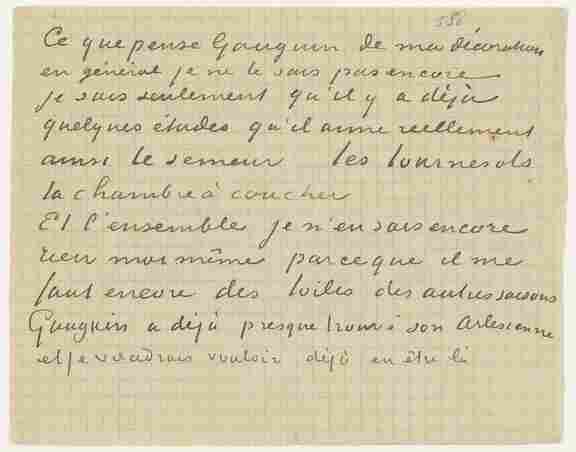 550
Ce que pense Gauguin de ma décoration
en général je ne le sais pas encore
je sais seulement qu'il y a déjà
quelques études qu'il aime reellement
ainsi le semeur les tournesols
la chambre à coucher
Et l'ensemble je n'en sais encore
rien moi même parceque il me
faut encore des toiles des autres saisons
Gauguin a déjà presque trouvé son Arlesienne
et je voudrais vouloir déjà en être là